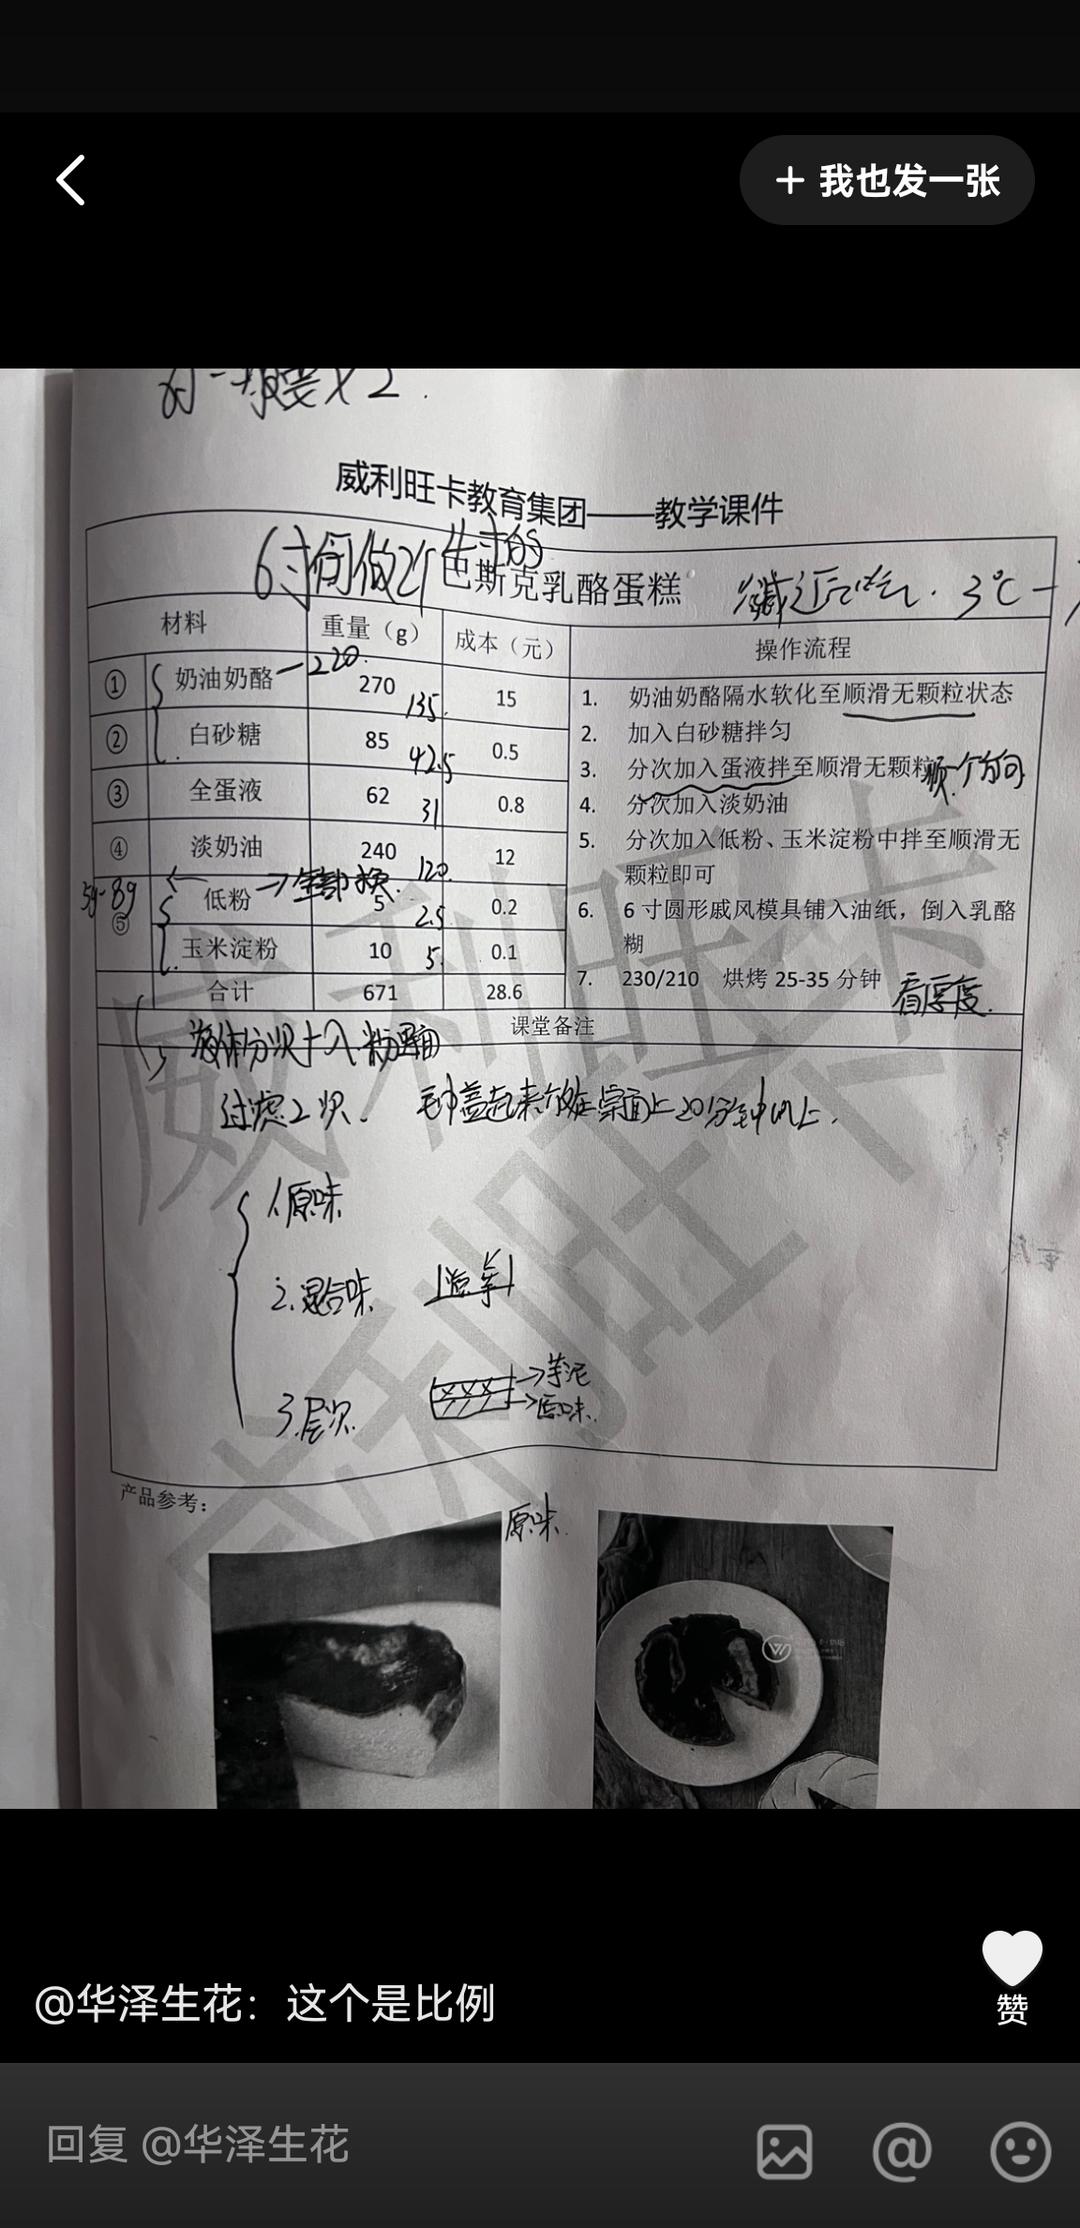 + 我也发一张
威利旺卡教育集团——教学课件
6寸间做2个4寸的
巴斯克乳酪蛋糕
3℃
材料 重量（g） 成本（元） 操作流程
① 奶油奶酪 220 270 135 15
② 白砂糖 85 42.5 0.5
③ 全蛋液 62 31 0.8
④ 淡奶油 240 120 12
5g-8g ⑤ 低粉 →全部换 5 2.5 0.2
玉米淀粉 10 5 0.1
合计 671 28.6
1. 奶油奶酪隔水软化至顺滑无颗粒状态
2. 加入白砂糖拌匀
3. 分次加入蛋液拌至顺滑无颗粒 顺一个方向
4. 分次加入淡奶油
5. 分次加入低粉、玉米淀粉中拌至顺滑无
颗粒即可
6. 6 寸圆形戚风模具铺入油纸，倒入乳酪
糊
7. 230/210 烘烤 25-35 分钟 看厚度.
课堂备注
液体分次加入粉里面
过滤2次. 毛巾盖起来放在桌面上20分钟以上.
1.原味
2.混合味
3.层次 →芋泥
→原味.
产品参考：
原味.
威利旺卡
威利旺卡
@华泽生花：这个是比例
赞
回复 @华泽生花